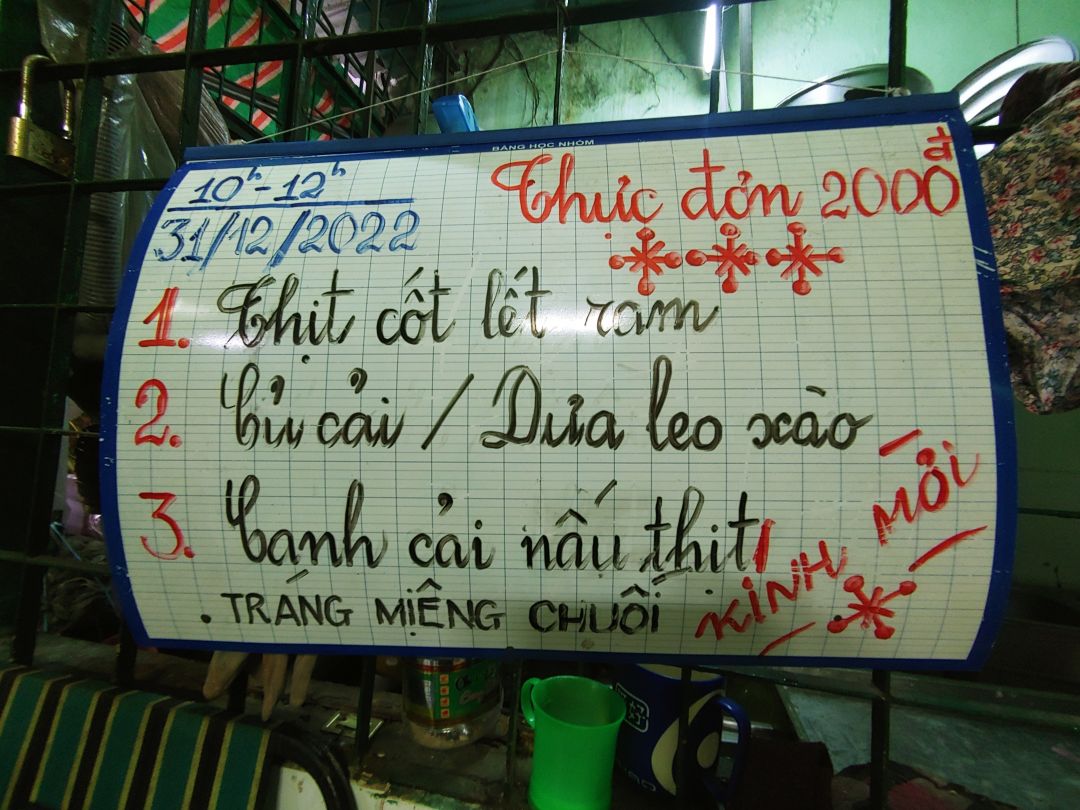 BẢNG HỌC NHÓM
10h - 12h
31/12/2022
Thực đơn 2000đ
1. Thịt cốt lết ram
2. Củ cải / Dưa leo xào
3. Canh cải nấu thịt
. TRÁNG MIỆNG CHUỐI
KÍNH MỜI